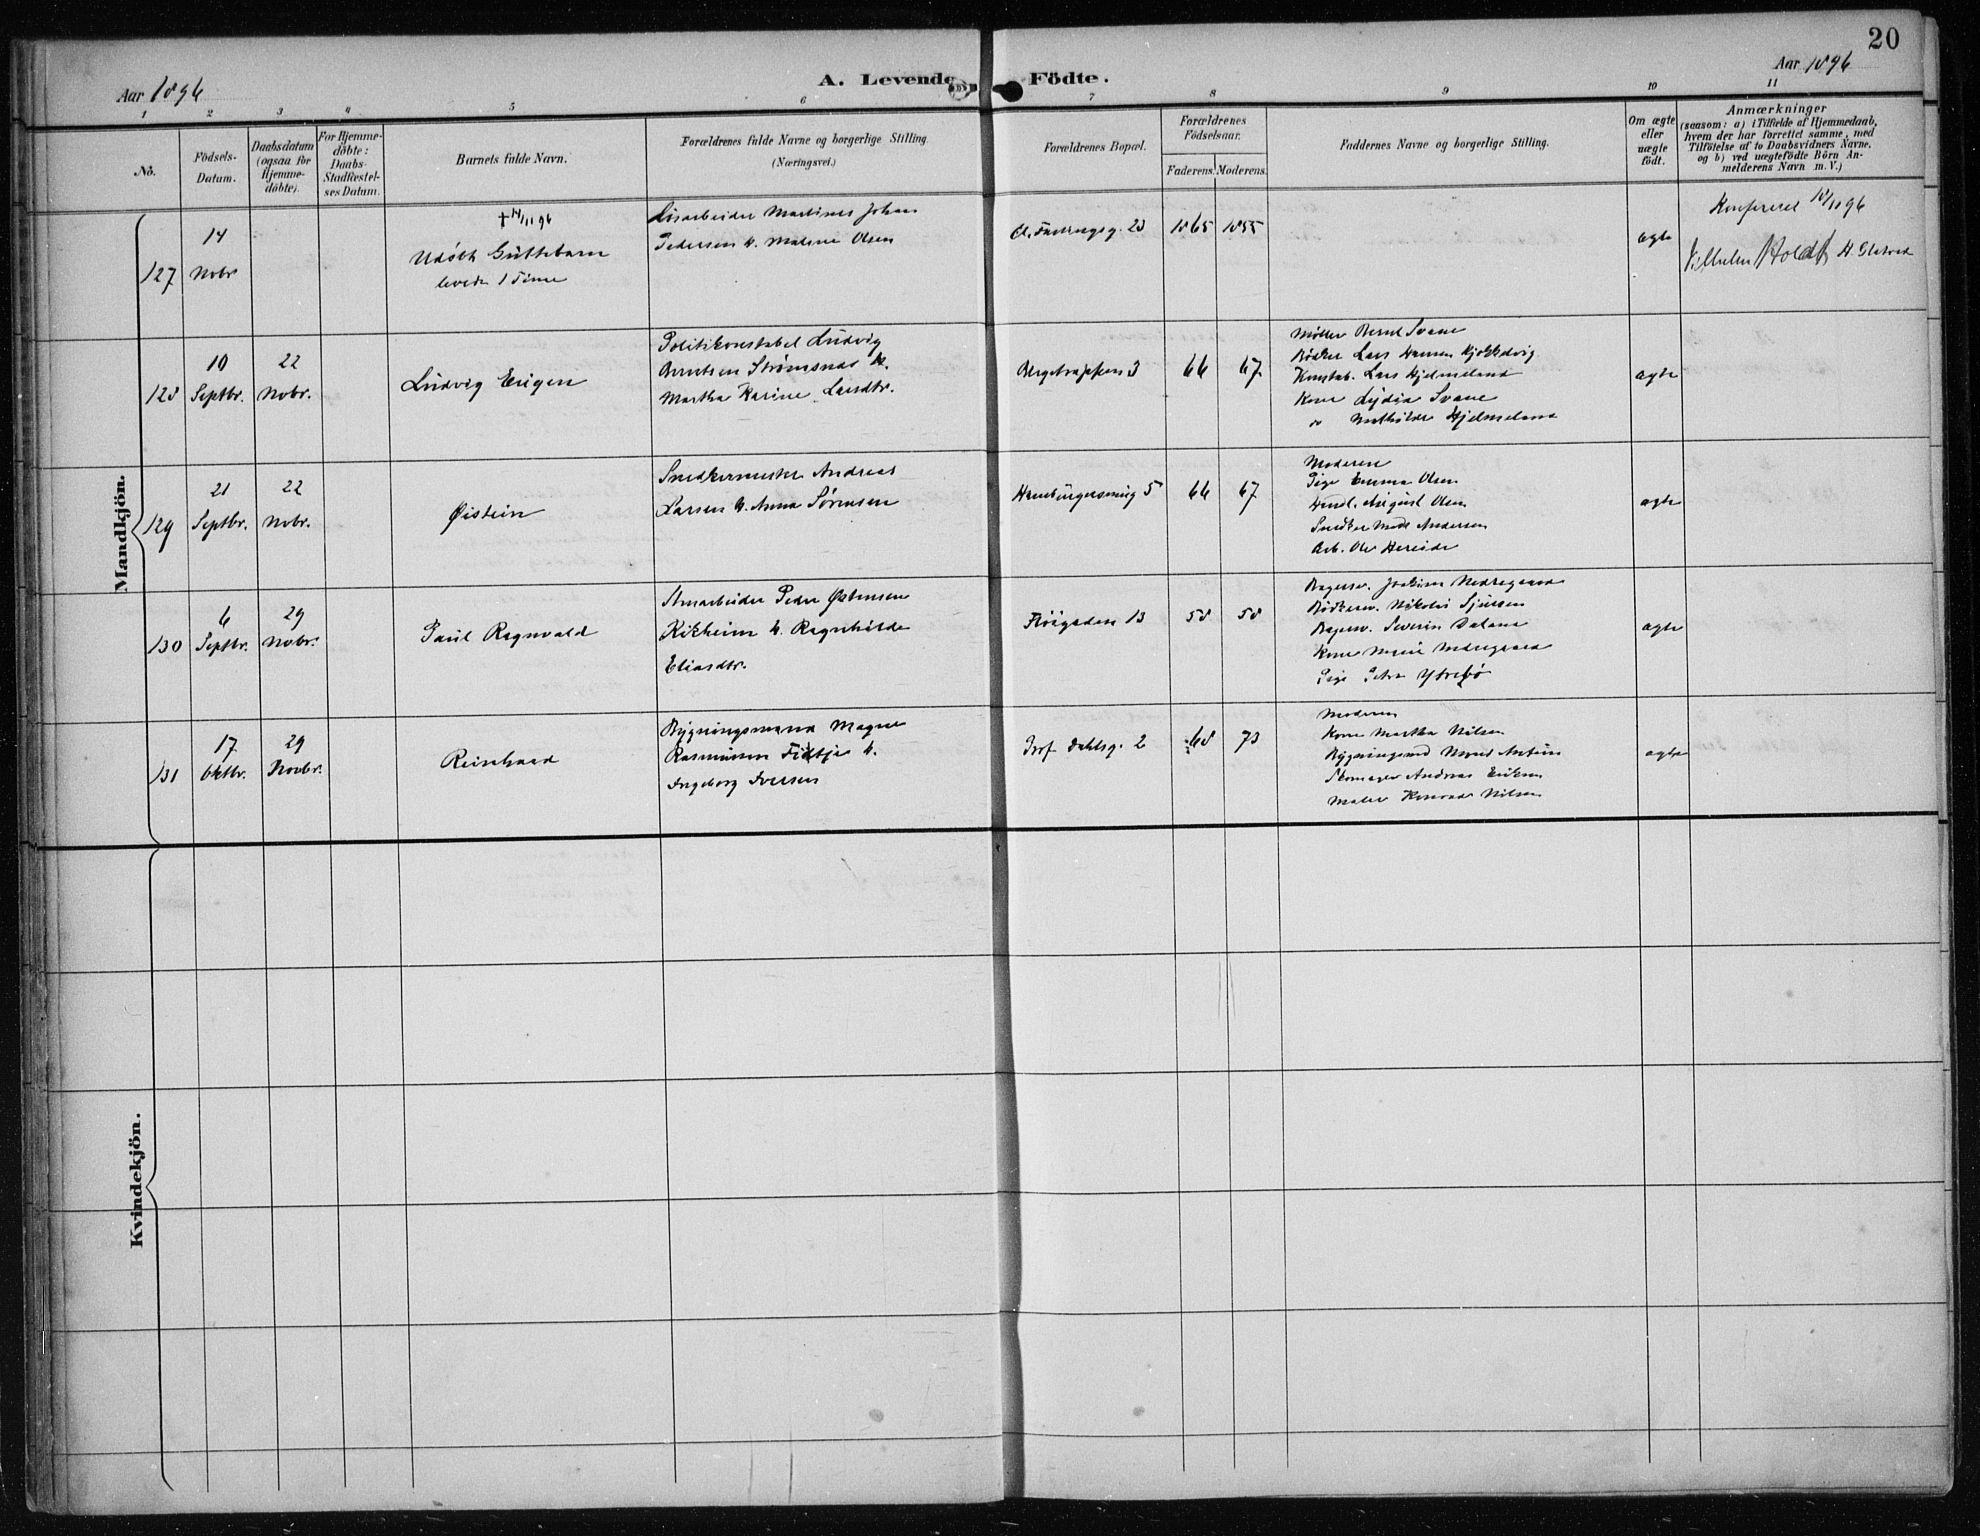 20
Aar 1896
A. Levende Födte.
Aar 1896
1 2 3 4 5 6 7 8 9 10 11
No.
Födsels-
Datum.
Daabsdatum
(ogsaa for
Hjemme-
döbte).
For Hjemme-
döbte:
Daabs-
Stadfæstel-
ses Datum.
Barnets fulde Navn.
Forældrenes fulde Navne og borgerlige Stilling.
(Næringsvei.)
Forældrenes Bopæl.
Forældrenes
Födselsaar.
Faderens. Moderens.
Faddernes Navne og borgerlige Stilling.
Om ægte
eller
uægte
födt.
Anmærkninger
(saasom: a) i Tilfælde af Hjemmedaab,
hvem der har forrettet samme, med
Tilföielse af to Daabsvidners Navne,
og b) ved uægtefödte Börn An-
melderens Navn m. V.)
Mandkjön.
127
14
Novbr
† 14/11 96
Udøbt Guttebarn
levede 1 Time
Løsarbeider Martinus Johan
Pedersen & Malene Olsen
23
1865 1855
ægte
Konfereret 18/11 96
Vilhelm Holdt
128
10
Septbr.
22
Novbr.
Ludvig Eugen
Politikonstabel Ludvig
Berntsen Strømsnes &
Martha Karine Larsdtr.
3
66 67
Møller Bernt Svane
Bødker Lars Hansen
Konstab. Lars Hjelmeland
Kone Lydia Svane
do Mathilde Hjelmeland
ægte
129
21
Septbr.
22
Novbr.
Øistein
Snedkermester Andreas
Larsen & Anna Sørensen
5
66 67
Moderen
Pige Emma Olsen
Handl. August Olsen
Snedker Andersen
Arb. Ole Hereide
ægte
130
6
Septbr.
29
Novbr.
Paul Ragnvald
Stenarbeider Peder Østensen
Kikheim & Ragnhilde
Eliasdtr.
Fløigaden 13
58 58
Bagersv. Joakim Nedregaard
Bødkersv. Nikolai Sjursen
Bagersv. Severin Dalane
Kone Marie Nedregaard
Pige Petra Ytrebø
ægte
131
17
Oktbr.
29
Novbr.
Reinhard
Bygningsmand Magne
Rasmussen Fidtje &
Ingeborg Iversen
Prof. Dahlsg. 2
68 73
Moderen
Kone Martha Nilsen
Bygningsmd
Skomager Andreas Eriksen
Maler Konrad Nilsen
ægte
Kvindekjön.